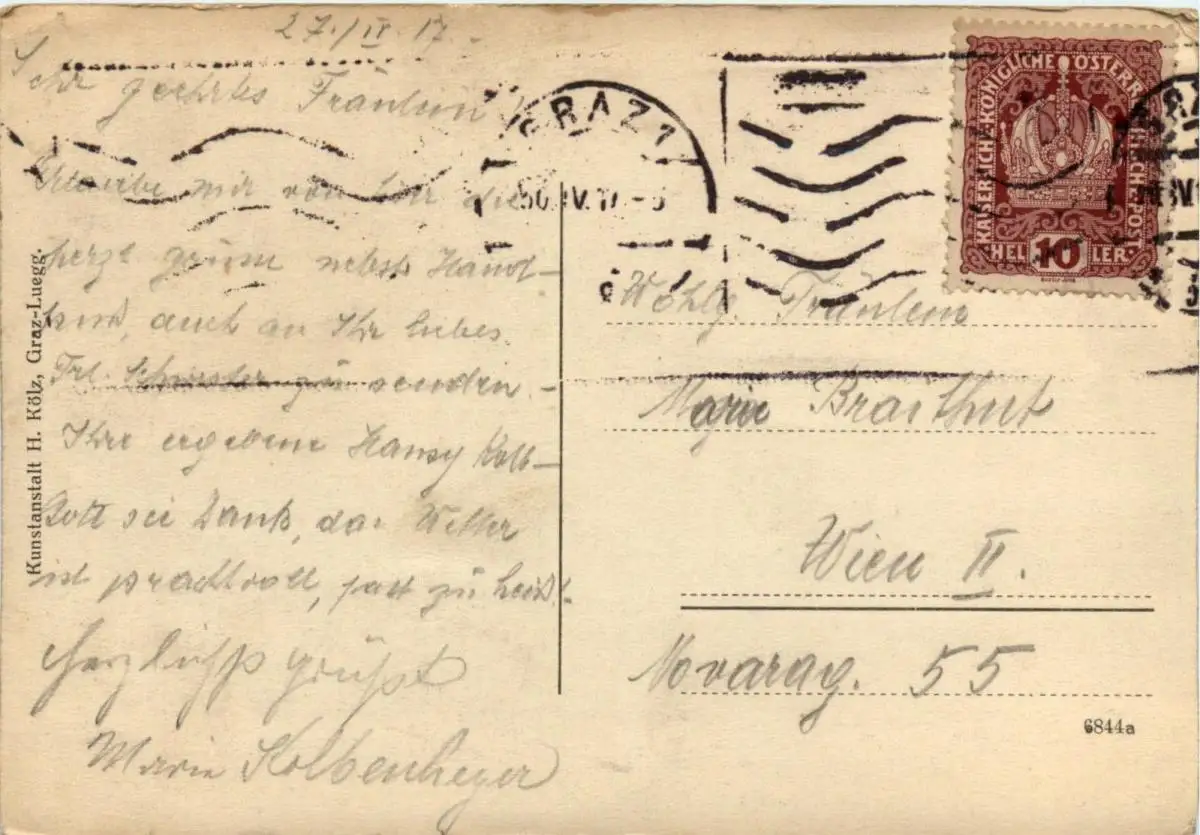 27./IV 17.
Sehr geehrtes Fräulein!
Erlaube mir von hier die
herzl grüsse nebst Hand-
kuß, auch an Ihr liebes
Frl. Schwester zu senden. -
Ihr ergebene Hansy Kolb-
Gott sei Dank, das Wetter
ist prachtvoll, fast zu heiß!
Herzlichst grüßt
Marie Kolbenheyer
Kunstanstalt H. Kölz, Graz-Luegg.
GRAZ 1
IV. 17
KAISERLICHE KÖNIGLICHE ÖSTERREICH. POST
HEL 10 LER
Wohlg. Fräulein
Marie Braithut
Wien II.
Novarag. 55
6844a